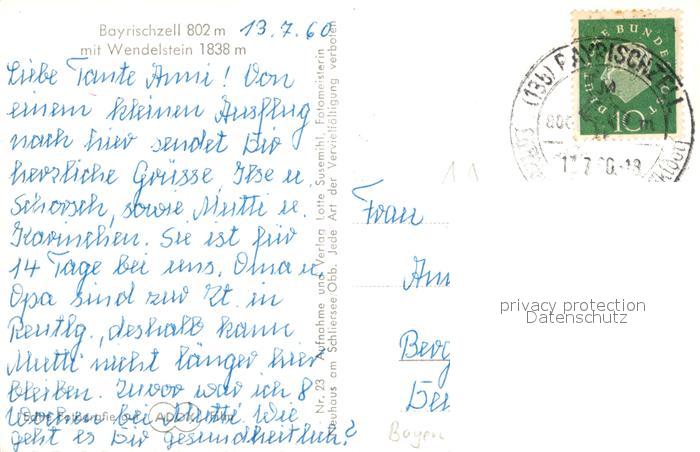 Bayrischzell 802 m
mit Wendelstein 1838 m
13.7.60
Liebe Tante Anni! Von
einem kleinen Ausflug
nach hier sendet Dir
herzliche Grüsse, Ilse u.
Schorsch, sowie Mutti u.
Karinchen. Sie ist für
14 Tage bei uns. Oma u.
Opa sind zur Zt. in
Reutlg., deshalb kann
Mutti nicht länger hier
bleiben. Zuvor war ich 8
Wochen bei Mutti. Wie
geht es Dir gesundheitlich?
Nr. 23 Aufnahme und Verlag Lotte Susemihl, Fotomeisterin
Neuhaus am Schliersee/Obb. Jede Art der Vervielfältigung verboten
(13b) BAYRISCHZELL
10
11
Frau
Ann
Berg
Bayern
privacy protection
Datenschutz